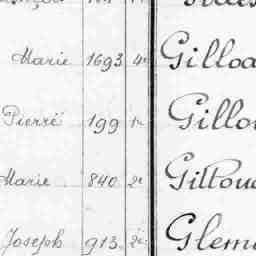 Marie 1693 4e Gilloa
Pierre 199 1e Gillou
Marie 840 2e Giltoua
Joseph 913 2e Glema